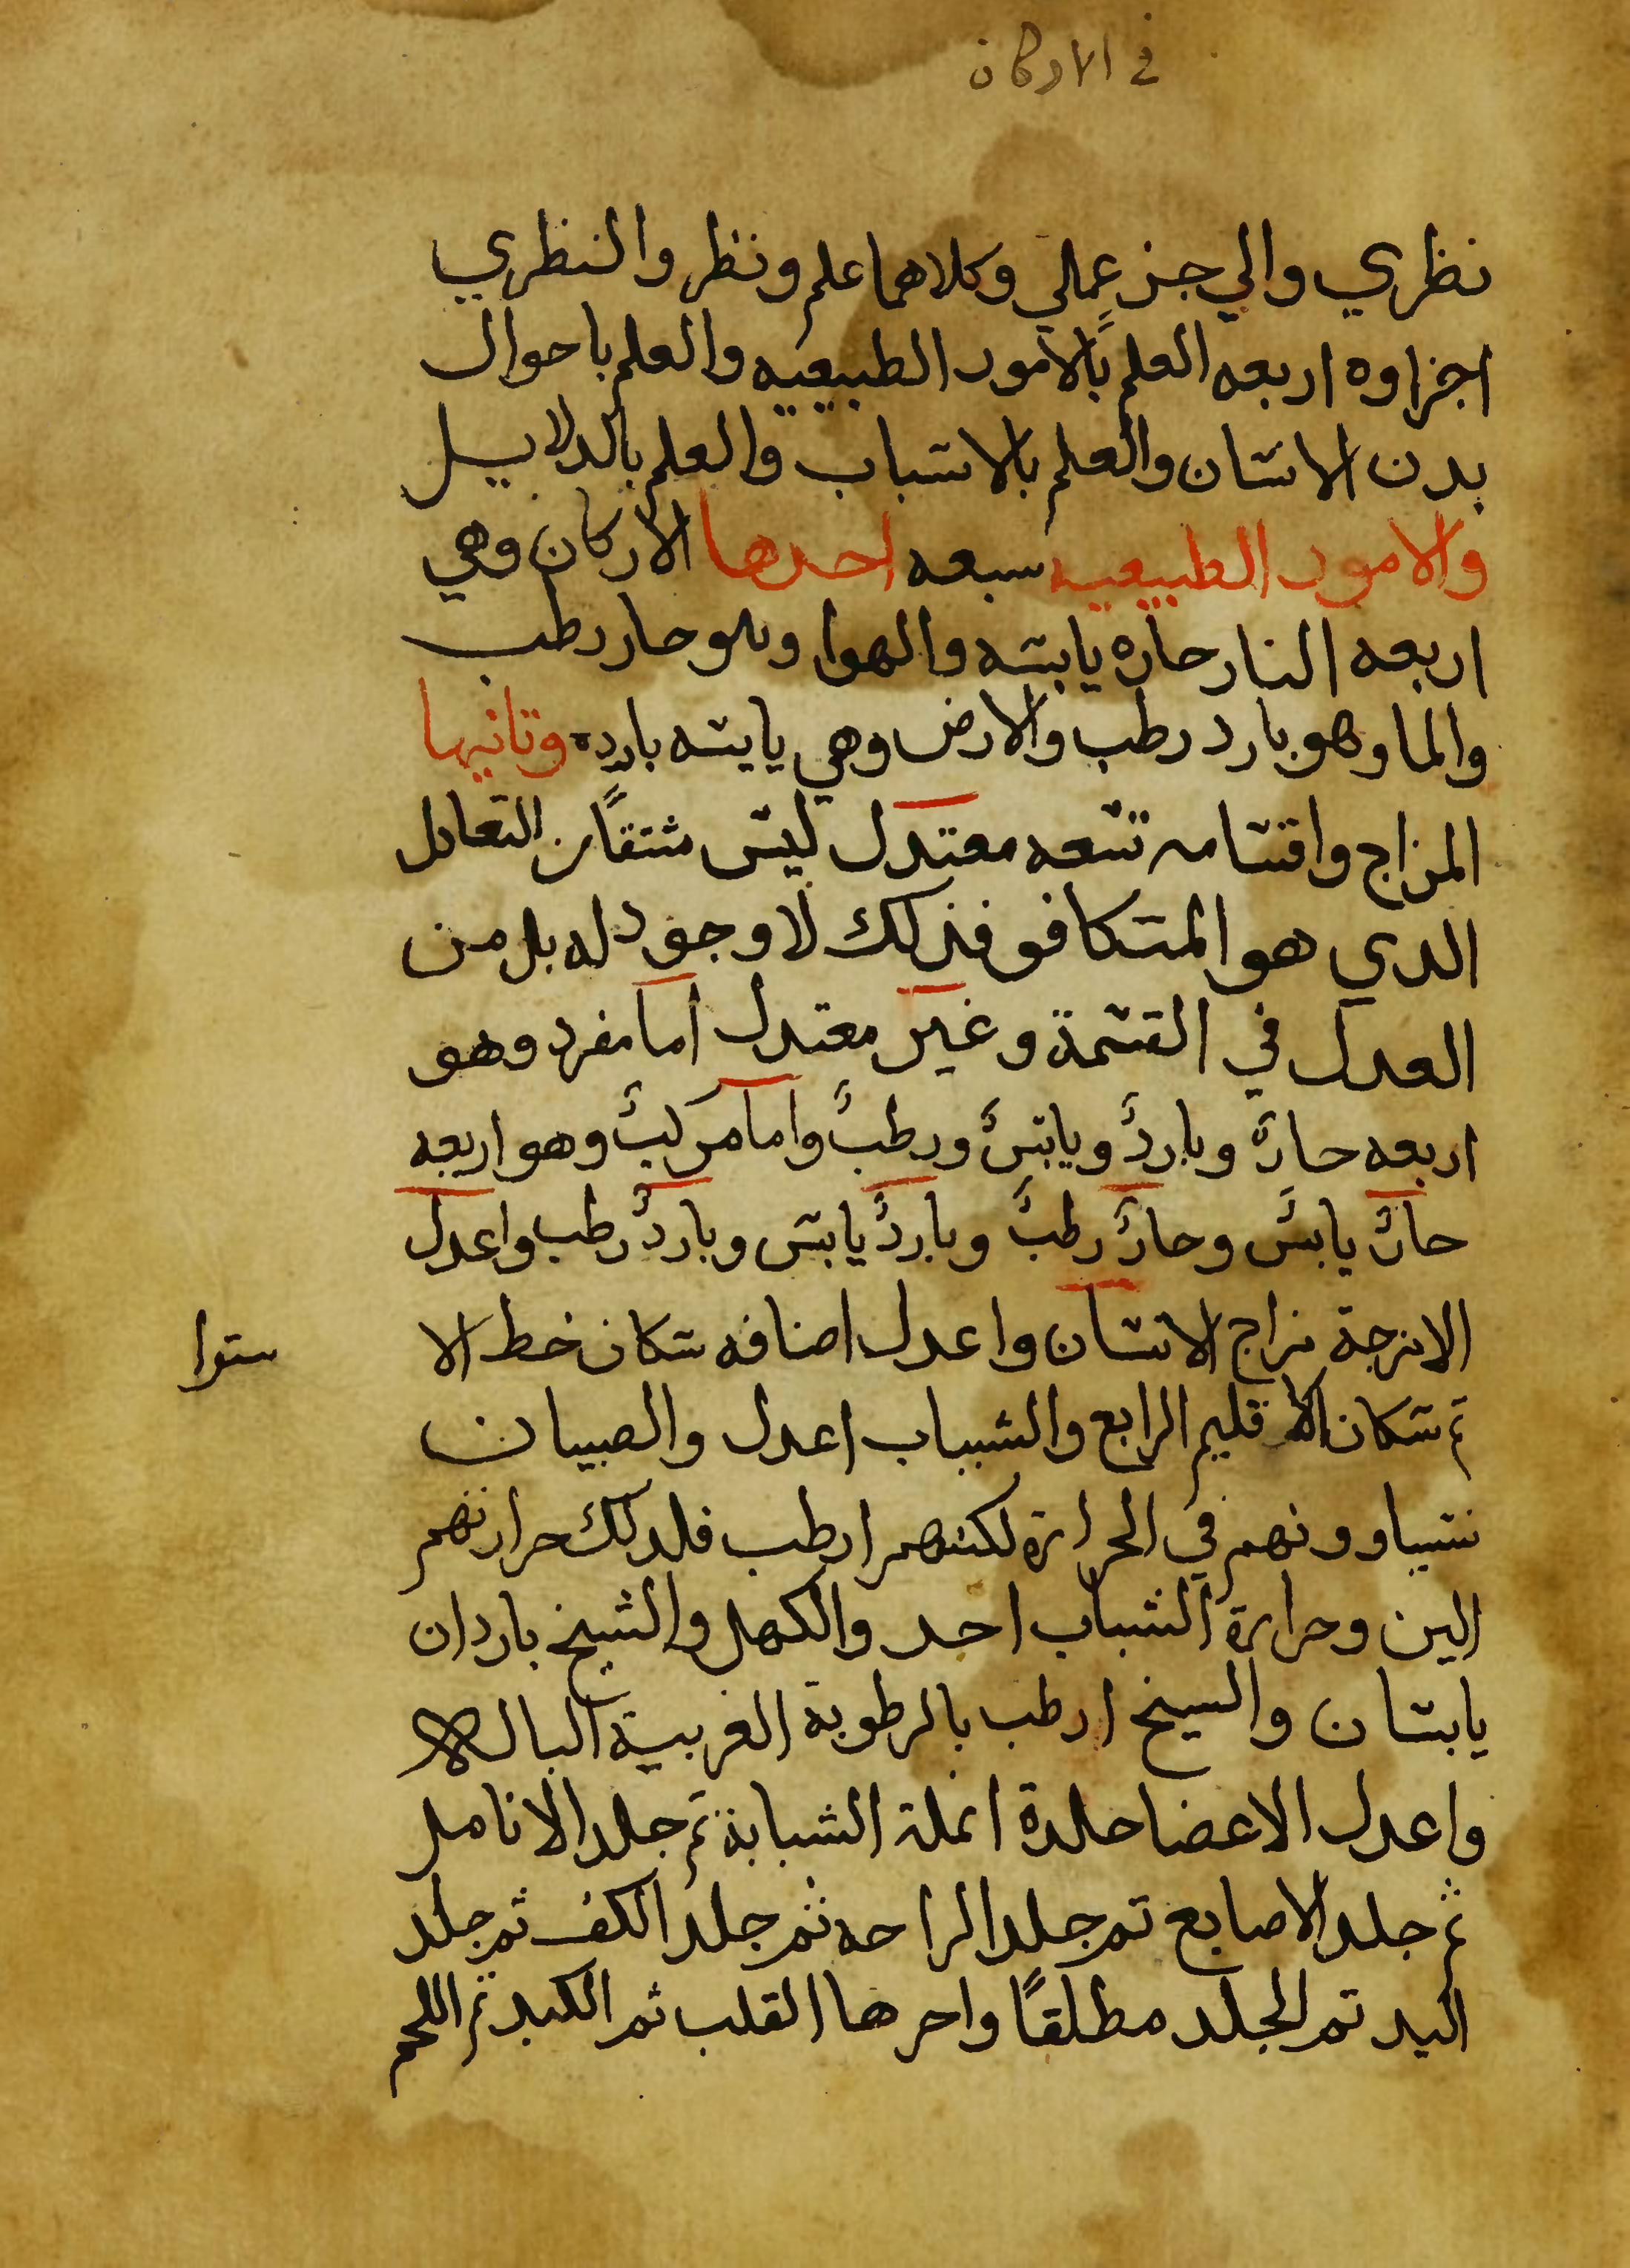 في الاركان
نظري والي جز عملي وكلاهما علم ونظر والنظري
اجزاوه اربعه العلم بالامور الطبيعيه والعلم باحوال
بدن الانسان والعلم بالاسباب والعلم بالدلايل
والامور الطبيعيه سبعه احدها الاركان وهي
اربعه النار حاره يابسه والهوا وهو حار رطب
والما وهو بارد رطب والارض وهي يابسه بارده وتانيها
المزاج واقسامه تسعه معتدل ليس مشتقًا من التعادل
الدي هو المتكافو فذلك لا وجود له بل من
العدل في القسمة وغير معتدل اما مفرد وهو
اربعه حارٌ وباردٌ ويابسٌ ورطبٌ واما مركبٌ وهو اربعه
حارٌ يابسٌ وحارٌ رطبٌ وباردٌ يابس وباردٌ رطب واعدل
الامزجة مزاج الانسان واعدل اصنافه سكان خط الا
ستوا
تم سكان الاقليم الرابع والشباب اعدل والصبيان
يتساوونهم في الحرارة لكنهم ارطب فلدلك حرارتهم
الين وحرارة الشباب احد والكهل والشيخ باردان
يابسان والسيخ ارطب بالرطوبة الغريبة البالة
واعدل الاعضا جلدة انملة السبابة تم جلد الانامل
ثم جلد الاصابع تم جلد الراحه ثم جلد الكف ثم جلد
اليد تم الجلد مطلقًا واحرها القلب ثم الكبد ثم اللحم